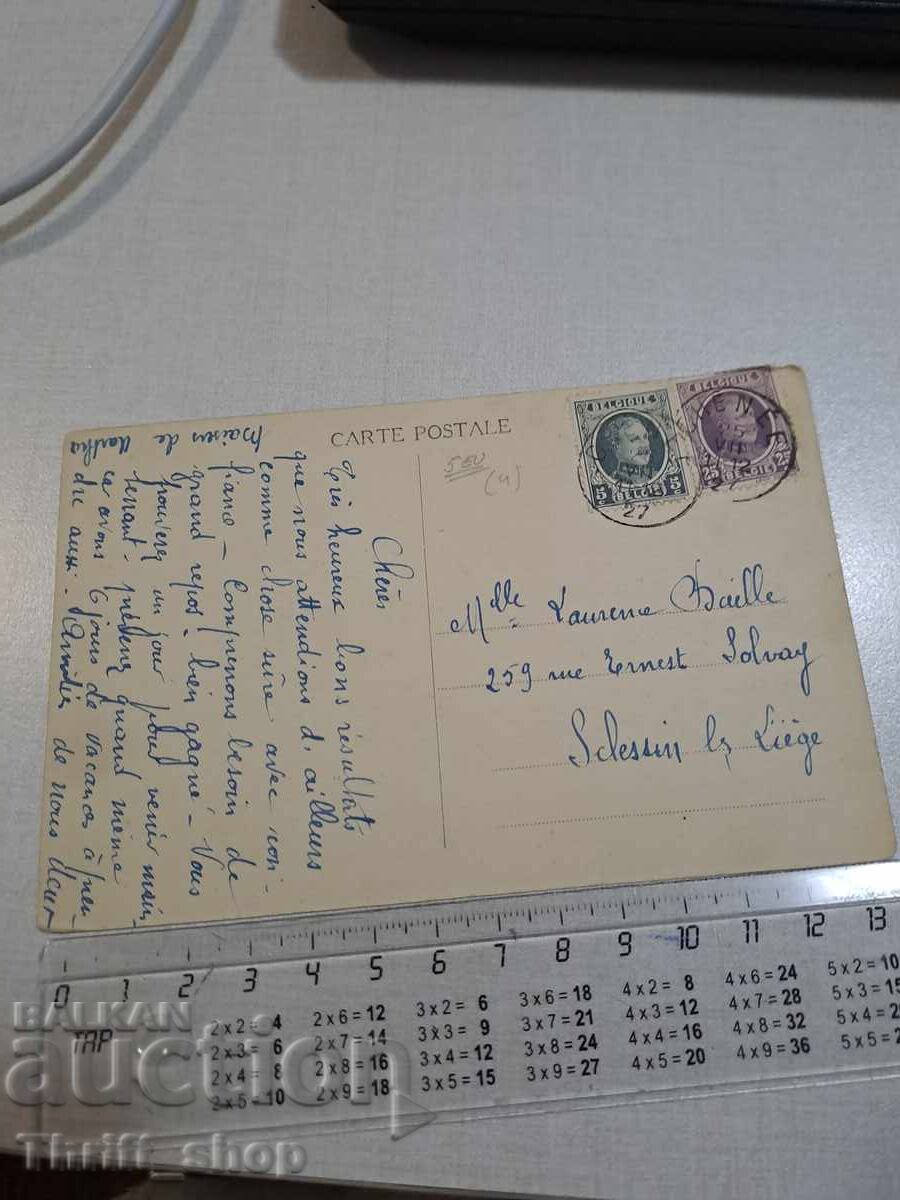 CARTE POSTALE
BELGIQUE
5c
BELGIE
BELGIQUE
25
BELGIE
25
27
5EU
(4)
Chères
Très heureux bons résultats
que nous attendions d'ailleurs
comme chose sûre avec con-
fiance - Comprenons besoin de
grand repos. bien gagné - Vous
pouviez un jour pour venir main-
tenant. quand même
avons 6 jours de vacances à
aussi - de nous deux
Baisers de
Mdlle Laurence Baille
259 rue Ernest Solvay
Sclessin lz Liège
0 1 2 3 4 5 6 7 8 9 10 11 12 13
TAP
2 x 2 = 4
2 x 3 = 6
2 x 4 = 8
2 x 5 = 10
2 x 6 = 12
2 x 7 = 14
2 x 8 = 16
2 x 9 = 18
3 x 2 = 6
3 x 3 = 9
3 x 4 = 12
3 x 5 = 15
3 x 6 = 18
3 x 7 = 21
3 x 8 = 24
3 x 9 = 27
4 x 2 = 8
4 x 3 = 12
4 x 4 = 16
4 x 5 = 20
4 x 6 = 24
4 x 7 = 28
4 x 8 = 32
4 x 9 = 36
5 x 2 = 10
5 x 3 = 15
5 x 4 = 2
5 x 5 = 2
BALKAN
auction
Thrift_shop